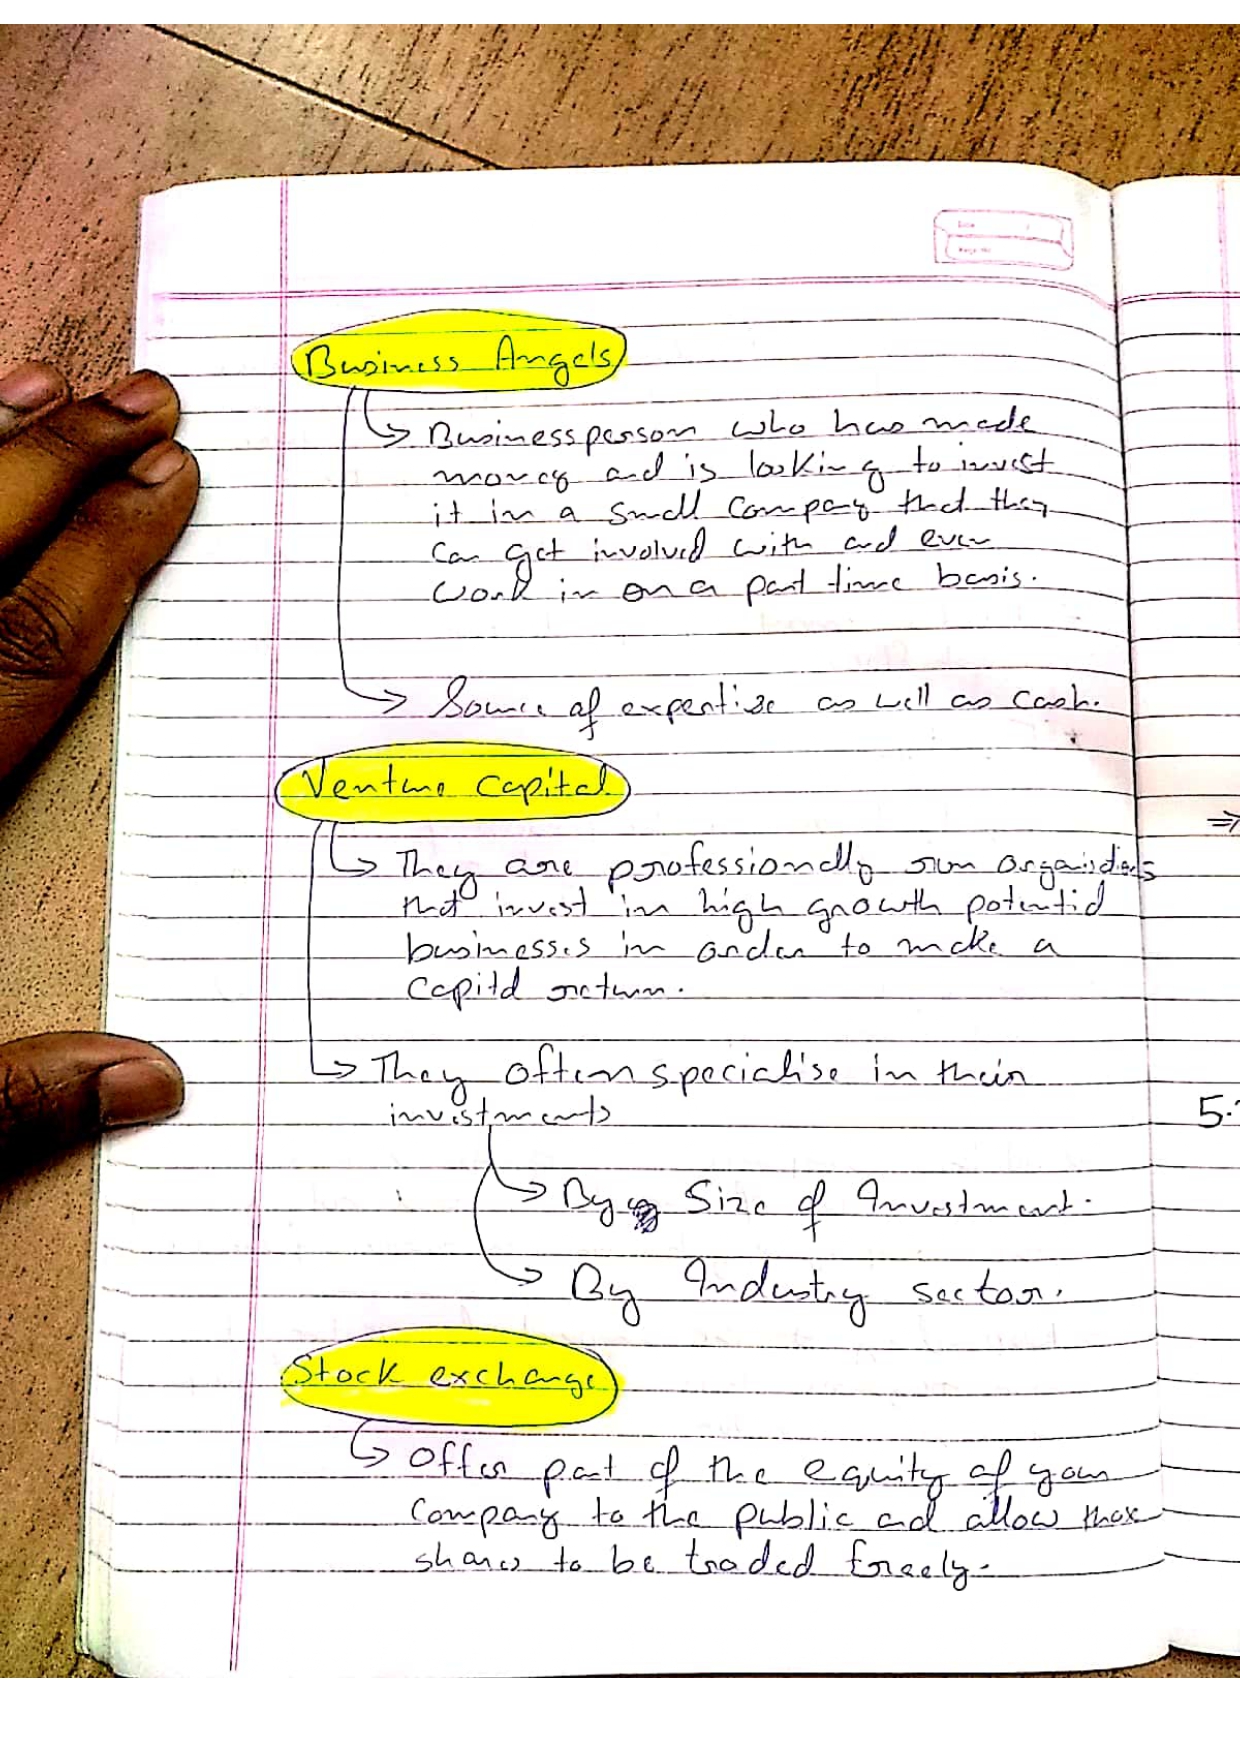 Business Angels
Businessperson who has made
money and is looking to invest
it in a small company that they
can get involved with and even
work in on a part time basis.
Source of expertise as well as cash.
Venture capital
They are professionally run organisations
that invest in high growth potential
businesses in order to make a
capital return.
They often specialise in their
investments
By Size of Investment.
By Industry sector.
Stock exchange
Offer part of the equity of your
company to the public and allow these
shares to be traded freely.
⇒
5.